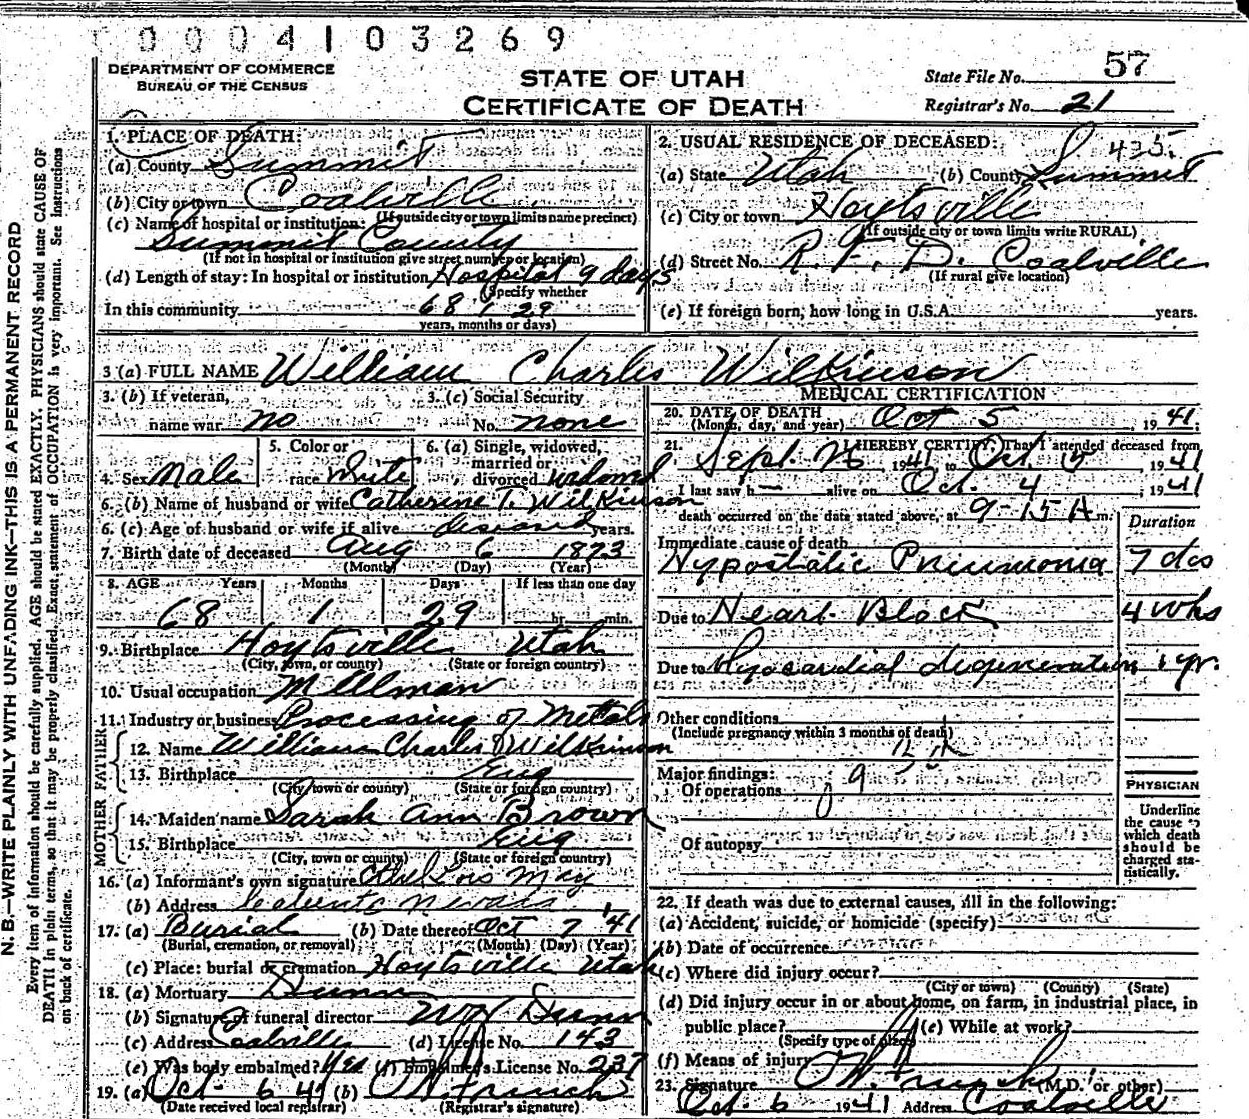 0004103269
DEPARTMENT OF COMMERCE
BUREAU OF THE CENSUS
STATE OF UTAH
CERTIFICATE OF DEATH
State File No. 57
Registrar's No. 21
1. PLACE OF DEATH:
(a) County Summit
(b) City or town Coalville
(If outside city or town limits name precinct)
(c) Name of hospital or institution:
Summit County
(If not in hospital or institution give street number or location)
(d) Length of stay: In hospital or institution Hospital 9 days
(Specify whether
In this community 68 1 29
years, months or days)
2. USUAL RESIDENCE OF DECEASED:
435.
(a) State Utah (b) County Summit
(c) City or town Hoytsville
(If outside city or town limits write RURAL)
(d) Street No. R. F. D. Coalville
(If rural give location)
(e) If foreign born, how long in U.S.A. years.
3 (a) FULL NAME William Charles Wilkinson
3. (b) If veteran,
name war no
3. (c) Social Security
No. none
4. Sex Male
5. Color or
race White
6. (a) Single, widowed,
married or
divorced widowed
6. (b) Name of husband or wife Catherine T. Wilkinson
6. (c) Age of husband or wife if alive years.
7. Birth date of deceased Aug 6 1873
(Month) (Day) (Year)
8. AGE Years Months Days If less than one day
68 1 29 hr. min.
9. Birthplace Hoytsville Utah
(City, town, or county) (State or foreign country)
10. Usual occupation Millman
11. Industry or business Processing of Metals
FATHER
12. Name William Charles Wilkinson
13. Birthplace Eng
(City, town or county) (State or foreign country)
MOTHER
14. Maiden name Sarah Ann Brown
15. Birthplace Eng
(City, town or county) (State or foreign country)
16. (a) Informant's own signature Lois May
(b) Address Nevada
17. (a) Burial (b) Date thereof Oct 7 '41
(Burial, cremation, or removal) (Month) (Day) (Year)
(c) Place: burial or cremation Hoytsville Utah
18. (a) Mortuary Dunn
(b) Signature of funeral director Dunn
(c) Address Coalville (d) License No. 143
(e) Was body embalmed? Yes (f) Embalmer's License No. 237
19. (a) Oct 6 41 (b)
(Date received local registrar) (Registrar's signature)
MEDICAL CERTIFICATION
20. DATE OF DEATH
(Month, day, and year) Oct 5, 1941;
21. I HEREBY CERTIFY, That I attended deceased from
Sept. 26 1941 to Oct. 5 1941
I last saw h— alive on Oct. 4, 1941
death occurred on the date stated above, at 9-15 A m.
Duration
Immediate cause of death
Hypostatic Pneumonia 7 das
Due to Heart Block 4 wks
Due to Myocardial degeneration 1 yr.
Other conditions
(Include pregnancy within 3 months of death)
Major findings:
Of operations
Of autopsy
PHYSICIAN
Underline
the cause to
which death
should be
charged sta-
tistically.
22. If death was due to external causes, fill in the following:
(a) Accident, suicide, or homicide (specify)
(b) Date of occurrence
(c) Where did injury occur?
(City or town) (County) (State)
(d) Did injury occur in or about home, on farm, in industrial place, in
public place? (e) While at work?
(Specify type of place)
(f) Means of injury
23. Signature (M.D. or other)
Oct. 6 1941 Address Coalville
N. B.—WRITE PLAINLY WITH UNFADING INK—THIS IS A PERMANENT RECORD
Every item of information should be carefully supplied. AGE should be stated EXACTLY. PHYSICIANS should state CAUSE OF
DEATH in plain terms, so that it may be properly classified. Exact statement of OCCUPATION is very important. See Instructions
on back of certificate.